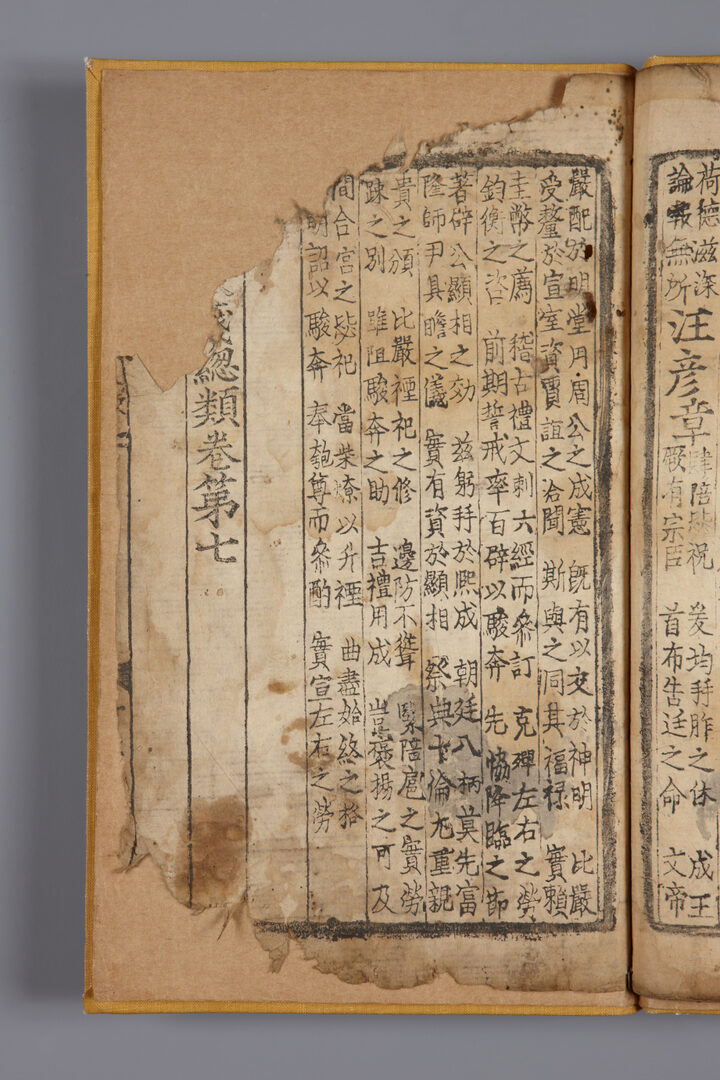 荷德滋深
論報無所 汪彦章 肆陪
厥有宗臣 爰均拜胙之休 成王
首布告廷之命 文帝
嚴配於明堂 周公之成憲 旣有以交於神明 比嚴
受釐於宣室 資賈誼之洽聞 斯與之同其福祿 實賴
圭幣之薦 稽古禮文刺六經而叅訂 克殫左右之勞
鈞衡之咨 前期誓戒率百辟以駿奔 先恊降臨之節
著辟公顯相之効 兹躬拜於熙成 朝廷八柄莫先富
隆師尹具瞻之儀 實有資於顯相 祭典十倫尤重親
貴之頒 比嚴禋祀之修 邊防不聳 緊陪扈之實勞
踈之別 雖阻駿奔之助 吉禮用成 豈褒揚之可及
間合宮之毖祀 當柴燎以升禋 曲盡始終之恪
明詔以駿奔 奉匏尊而叅酌 實宣左右之勞
緫類卷第七